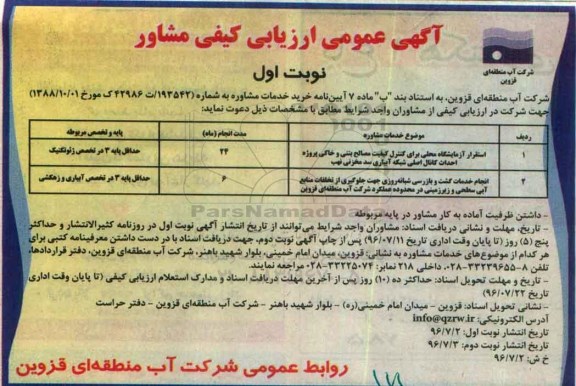 آگهی عمومی ارزیابی کیفی مشاور
شرکت آب منطقه‌ای
قزوین
نوبت اول
شرکت آب منطقه‌ای قزوین، به استناد بند "ب" ماده ۷ آیین‌نامه خرید خدمات مشاوره به شماره (۱۹۳۵۴۲/ت ۴۲۹۸۶ ک مورخ ۱۳۸۸/۱۰/۰۱)
جهت شرکت در ارزیابی کیفی از مشاوران واجد شرایط مطابق با مشخصات ذیل دعوت نماید:
ردیف موضوع خدمات مشاوره مدت انجام (ماه) پایه و تخصص مربوطه
۱ استقرار آزمایشگاه محلی برای کنترل کیفیت مصالح بتنی و خاکی پروژه احداث کانال اصلی شبکه آبیاری سد مخزنی نهب ۲۴ حداقل پایه ۳ در تخصص ژئوتکنیک
۲ انجام خدمات گشت و بازرسی شبانه‌روزی جهت جلوگیری از تخلفات منابع آبی سطحی و زیرزمینی در محدوده عملکرد شرکت آب منطقه‌ای قزوین ۶ حداقل پایه ۳ در تخصص آبیاری و زهکشی
ParsNamadData
- داشتن ظرفیت آماده به کار مشاور در پایه مربوطه
- تاریخ، مهلت و نشانی دریافت اسناد: مشاوران واجد شرایط می‌توانند از تاریخ انتشار آگهی نوبت اول در روزنامه کثیرالانتشار و حداکثر
پنج (۵) روز (تا پایان وقت اداری تاریخ ۹۶/۰۷/۱۱) پس از چاپ آگهی نوبت دوم، جهت دریافت اسناد با در دست داشتن معرفینامه کتبی برای
هر کدام از موضوع‌های خدمات مشاوره به نشانی: قزوین، میدان امام خمینی، بلوار شهید باهنر، شرکت آب منطقه‌ای قزوین، دفتر قراردادها،
تلفن ۸-۰۲۸-۳۳۲۳۹۶۵۵ داخلی ۲۱۸ نمابر: ۰۲۸-۳۳۲۲۵۰۷۴ مراجعه نمایند.
- تاریخ و مهلت تحویل اسناد: حداکثر ده (۱۰) روز پس از آخرین مهلت دریافت اسناد و مدارک استعلام ارزیابی کیفی (تا پایان وقت اداری
تاریخ ۹۶/۰۷/۲۲)
- نشانی تحویل اسناد: قزوین - میدان امام خمینی(ره) - بلوار شهید باهنر - شرکت آب منطقه‌ای قزوین - دفتر حراست
آدرس الکترونیکی: info@qzrw.ir
تاریخ انتشار نوبت اول: ۹۶/۷/۲
تاریخ انتشار نوبت دوم: ۹۶/۷/۳
خ ش: ۹۶/۷/۲
روابط عمومی شرکت آب منطقه‌ای قزوین